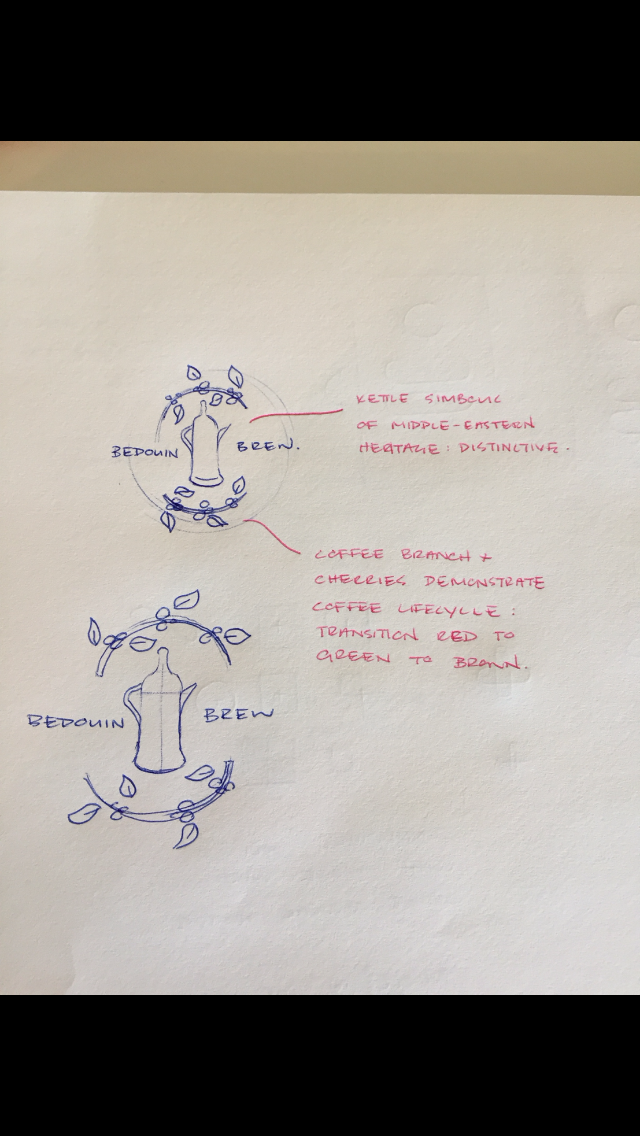 BEDOUIN BREW.
KETTLE SIMBOLIC
OF MIDDLE-EASTERN
HERITAGE: DISTINCTIVE.
COFFEE BRANCH +
CHERRIES DEMONSTRATE
COFFEE LIFECYCLE:
TRANSITION RED TO
GREEN TO BROWN.
BEDOUIN BREW